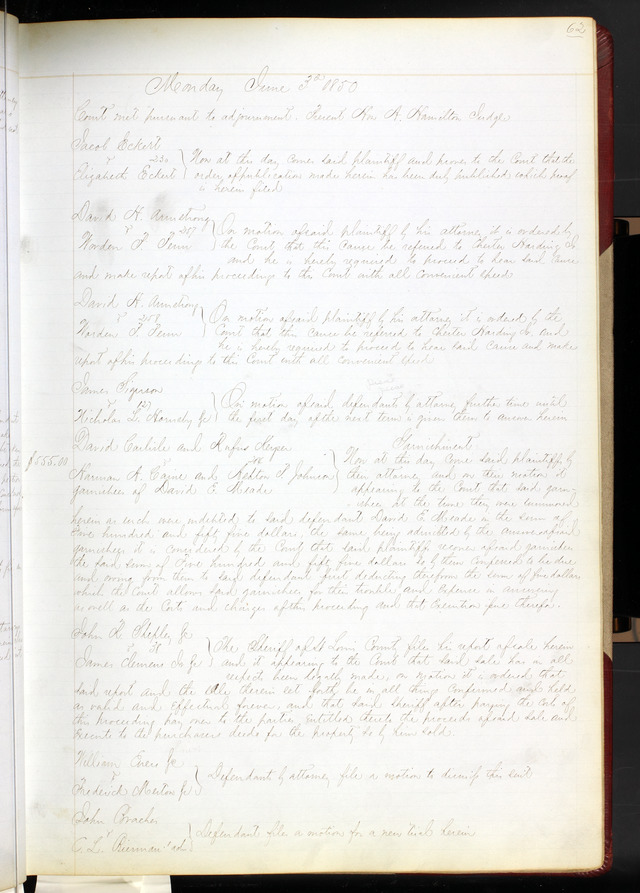 62
Monday June 3rd 1850
Court met pursuant to adjournment. Present Hon A. Hamilton Judge
Jacob Eckert
v 230
Elizabeth Eckert
Now at this day comes said plaintiff and proves to the Court that the
order of publication made herein has been duly published which proof
is herein filed
David H. Armstrong
v 257
Worden F. Fenn
On motion of said plaintiff by his attorney it is ordered by
the Court that this Cause be referred to Chester Harding Jr
and he is hereby required to proceed to hear said Cause
and make report of his proceedings to this Court with all convenient speed
David H. Armstrong
v 258
Worden F. Fenn
On motion of said plaintiff by his attorney it is ordered by the
Court that this cause be referred to Chester Harding Jr. and
he is hereby required to proceed to hear said Cause and make
report of his proceeding to this Court with all convenient speed
James Sigerson
v
Nicholas L. Hornsby Jr
On motion of said defendants by attorney further time until
the first day of the next term is given them to answer herein
David Carlile and Rufus Keyser
v
Harman H. Caine and Ashton P. Johnson
garnishees of David E. Meade
$555.00
Garnishment
Now at this day come said plaintiffs by
their attorney and on their motion it
appearing to the Court that said garni-
shees at the time they were summoned
herein as such were indebted to said defendant David E. Meade in the sum of
Five hundred and fifty five dollars, the same being admitted by the answer of said
garnishees it is considered by the Court that said plaintiffs recover of said garnishees
the said sum of Five hundred and fifty five dollars so by them confessed to be due
and owing from them to said defendant first deducting therefrom the sum of five dollars
which the Court allows said garnishees for their trouble and expense in answering
as well as the Costs and charges of this proceeding and that Execution issue therefor.
John H. Shepley Jr
v
James Clemens Jr
The Sheriff of St Louis County files his report of sale herein
and it appearing to the Court that said sale has in all
respects been legally made, on motion it is ordered that
said report and the sale therein set forth be in all things confirmed and held
as valid and effectual forever, and that said sheriff after paying the costs of
this proceeding pay over to the parties entitled thereto the proceeds of said sale and
execute to the purchasers deeds for the property so by him sold.
William
v
Frederick
Defendants by attorney file a motion to dismiss this suit
John Bracher
v
C. L.
Defendant files a motion for a new trial herein